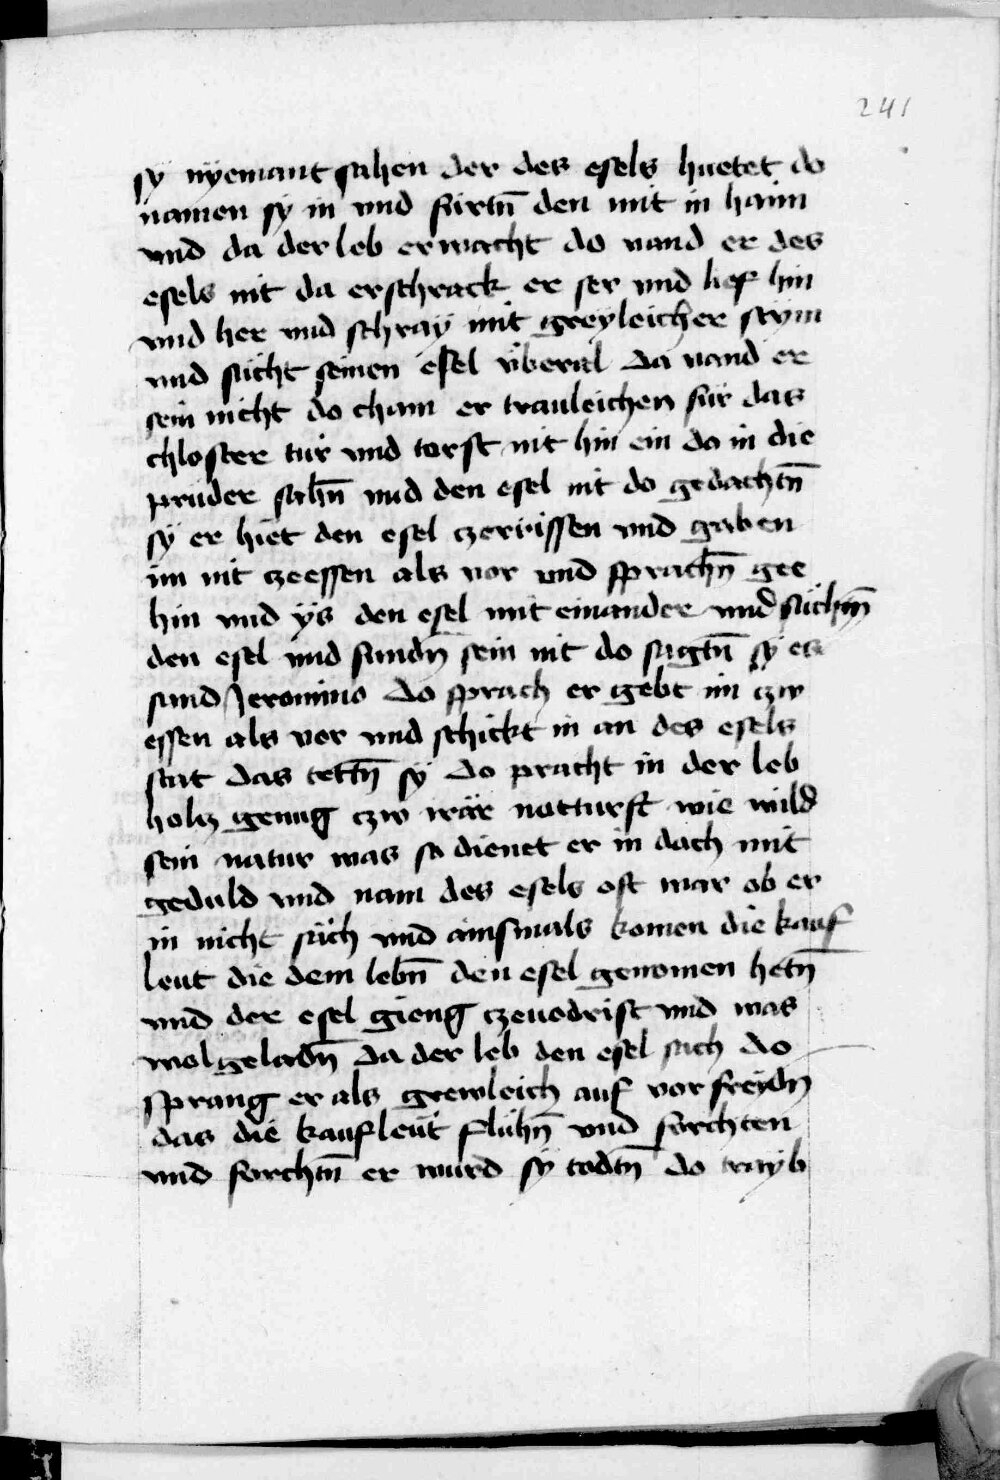 241
sÿ nÿemant sahen der des esels huetet do
namen sy in vnd fürtn̄ den mit in haim
vnd da der leb erwacht do vand er des
esels nit da erschrack er ser vnd lief hin
vnd her vnd schraÿ mit greyleicher stÿm
vnd sücht seinen esel v̈beral Da vand er
sein nicht do cham er trauleichen für das
chloster tür vnd torst nit hin ein do in die
prüder sahn̄ vnd den esel nit do gedachtn̄
sÿ er hiet den esel czerrissen vnd gaben
im nit czeessen als vor vnd sprachn̄ gee
hin vnd ÿs den esel mit einander vnd süchtn̄
den esel vnd fundn̄ sein nit do sagtn̄ sy es
sand Jeronimo Do sprach er gebt im czw
essen als vor vnd schickt in an des esels
stat das tettn̄ sÿ Do pracht in der leb
holcz genug czw irär notturft wie wild
sein natur was so dienet er in dach mit
geduld vnd nam des esels oft war ob er
in nicht säch vnd ainsmals komen die kauf
leut die dem lebn̄ den esel genomen hetn̄
vnd der esel gieng czeuodrist vnd was
wol geladn̄ Da der leb den esel sach do
sprang er als grewleich auf vor freÿdn̄
das die kaufleüt fluhn̄ vnd forchten
vnd forchtn̄ er wurd sÿ todtn̄ do traÿb